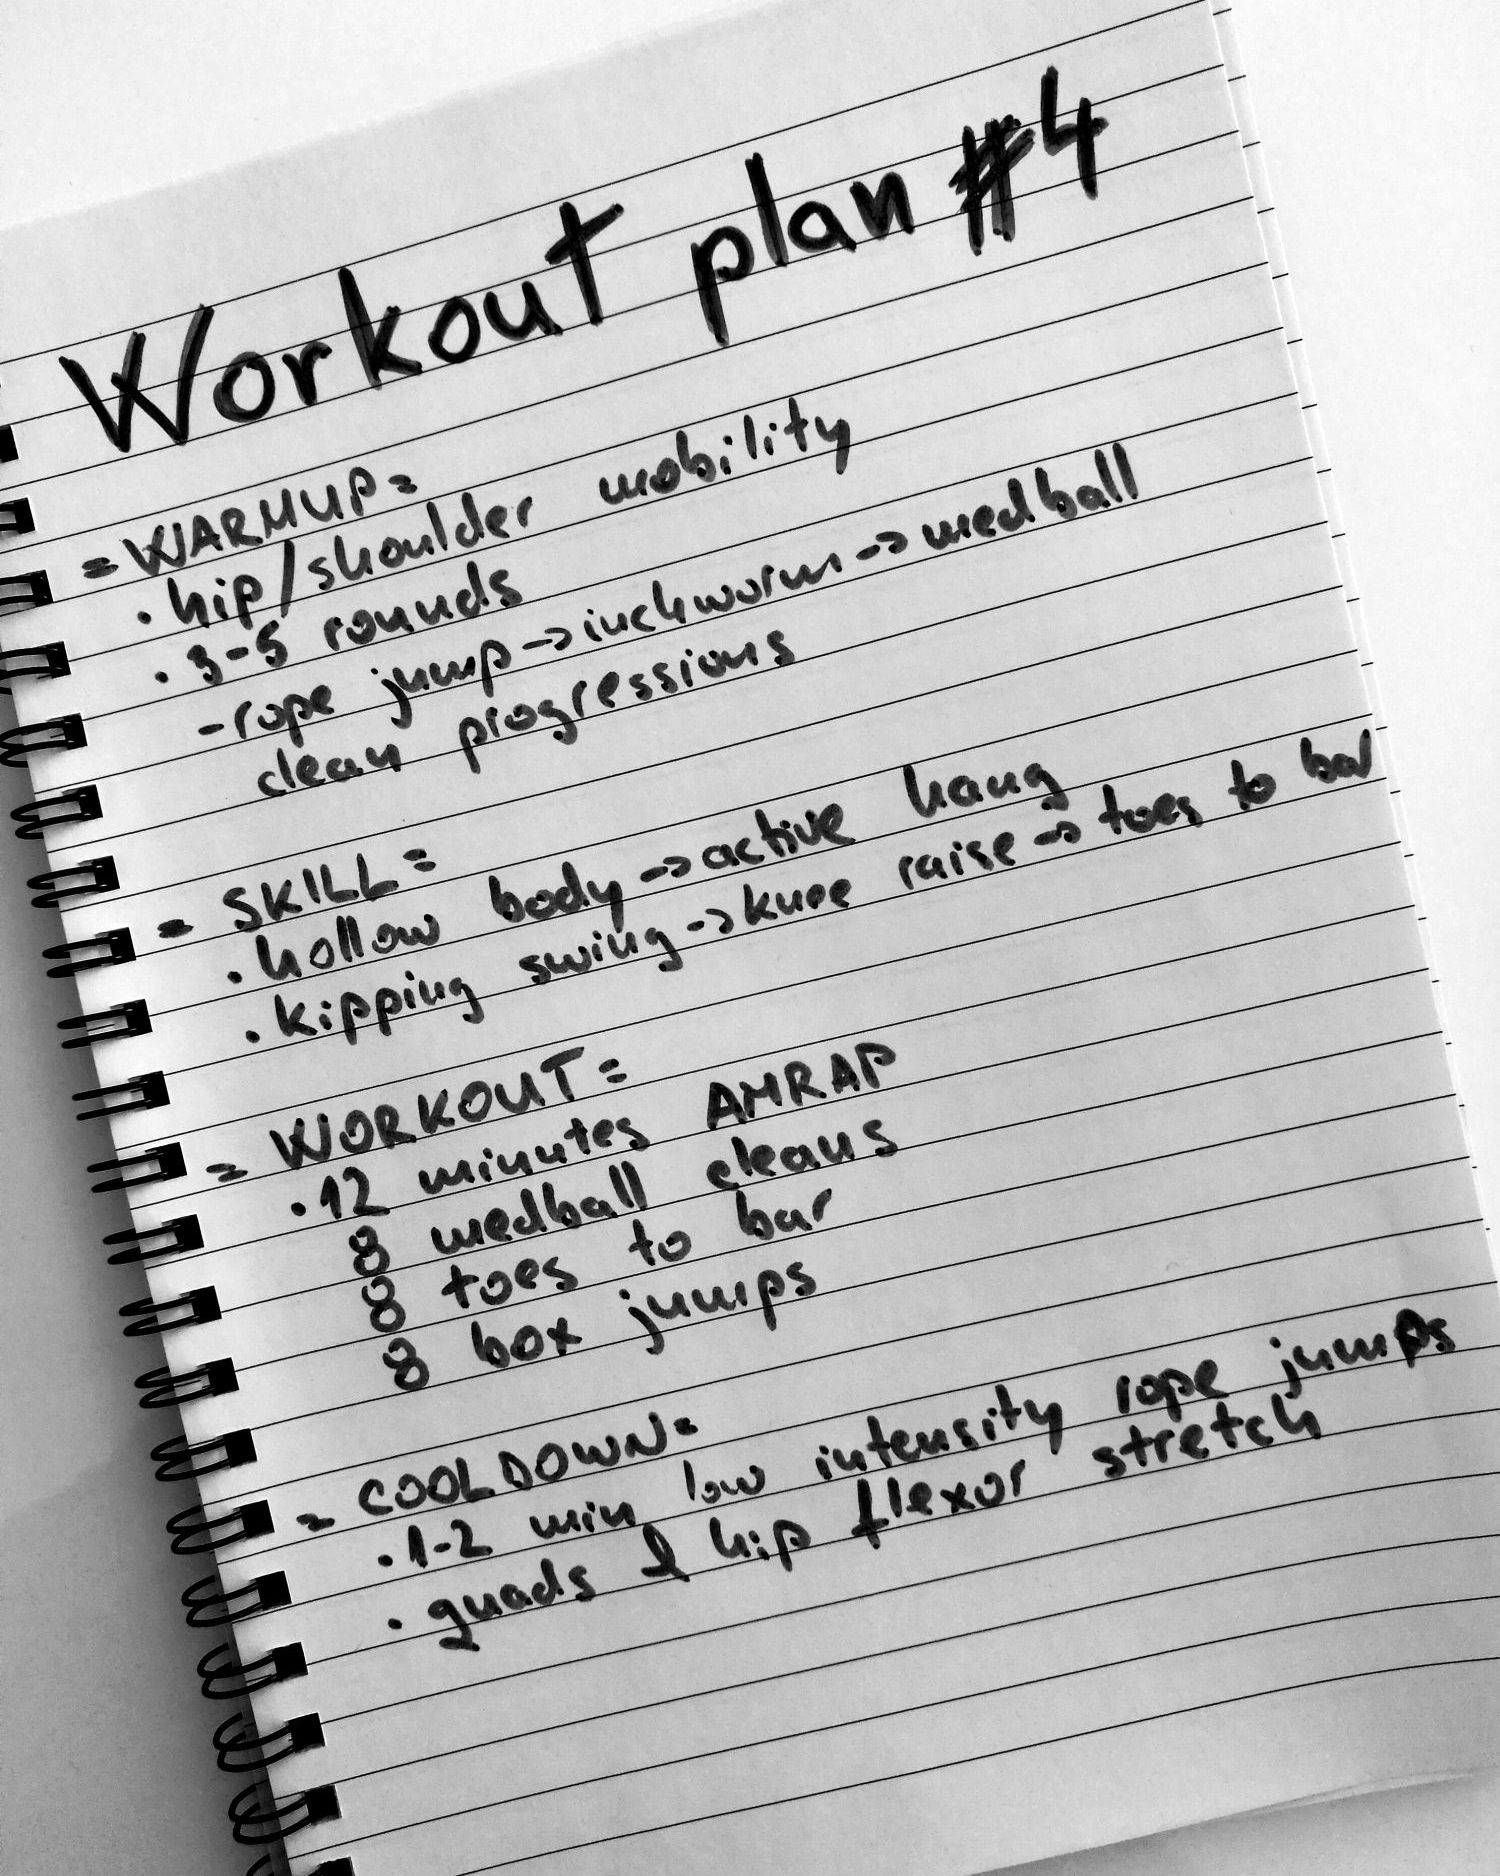 Workout plan #4
= WARMUP =
· hip/shoulder mobility
· 3-5 rounds
- rope jump -> inchworm -> medball
clean progressions
= SKILL =
· hollow body -> active hang
· kipping swing -> knee raise -> toes to bar
= WORKOUT =
· 12 minutes AMRAP
8 medball cleans
8 toes to bar
8 box jumps
= COOLDOWN =
· 1-2 min low intensity rope jumps
· quads & hip flexor stretch